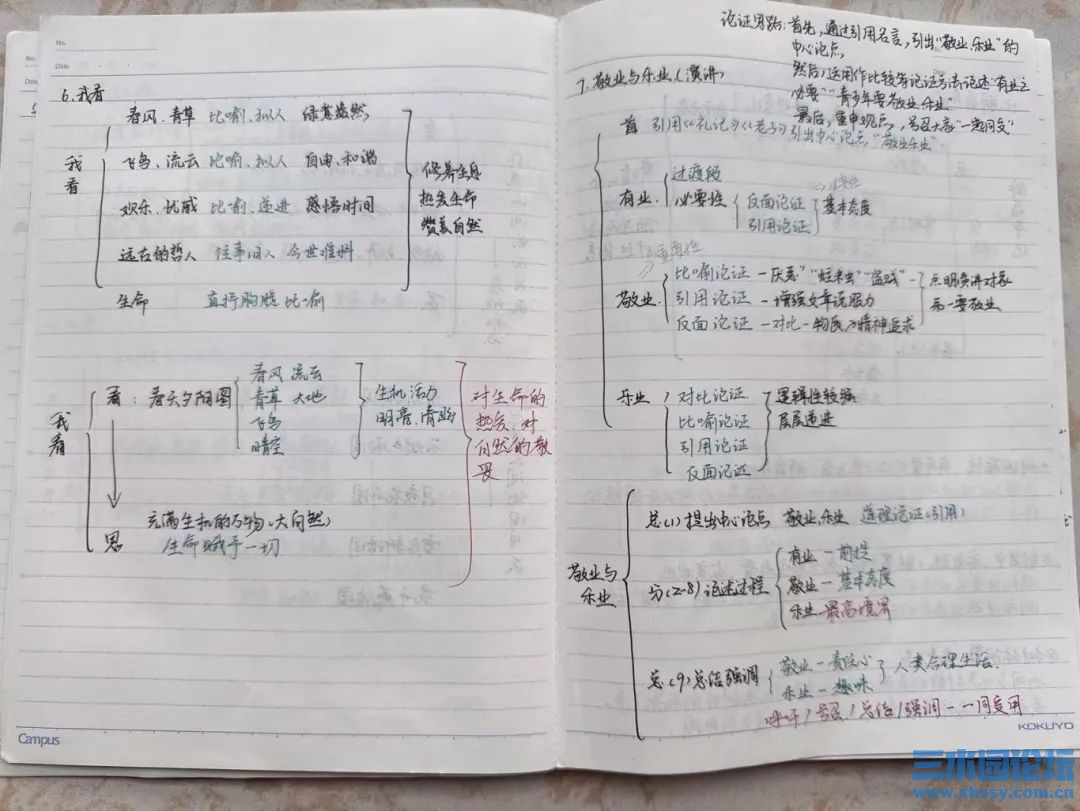 No.
Date
6.我看
我看
春风、青草 比喻、拟人 绿意盎然
飞鸟、流云 比喻、拟人 自由、和谐
欢乐、忧戚 比喻、递进 感悟时间
远古的哲人 往事旧人 今世难料
生命 直抒胸臆 比喻
修养生息
热爱生命
赞美自然
我看
看:春天夕阳图
春风 流云
青草 大地
飞鸟
晴空
生机 活力
明亮、清
对生命的
热爱、对
自然的敬
畏
思
充满生机的万物(大自然)
生命赋予一切
Campus
论证思路:首先,通过引用名言,引出"敬业、乐业"的
中心论点
然后,运用作比较等论证方法论述"有业之
必要""青少年要敬业、乐业"
最后,重申观点,号召大家"一起同受"
7.敬业与乐业(演讲)
首 引用《礼记》《老子》引出中心论点"敬业乐业"
有业
过渡段
必要性
反面论证
引用论证
基本态度
重要性
敬业
比喻论证 - "蛀米虫""盗贼"
引用论证 - 增强文章说服力
反面论证 - 对比 - 物质 精神追求
点明演讲对象
要敬业
乐业
对比论证
比喻论证
引用论证
反面论证
逻辑性较强
层层递进
敬业与
乐业
总(1)提出中心论点 敬业、乐业 道理论证(引用)
分(2-8)论述过程
有业 - 前提
敬业 - 基本态度
乐业 - 最高境界
总(9)总结强调
敬业 - 责任心
乐业 - 趣味
人类合理生活、
呼吁/号召/总结/强调 - 一同受用
KOKUYO
三水园论坛
www.xhssy.com.cn